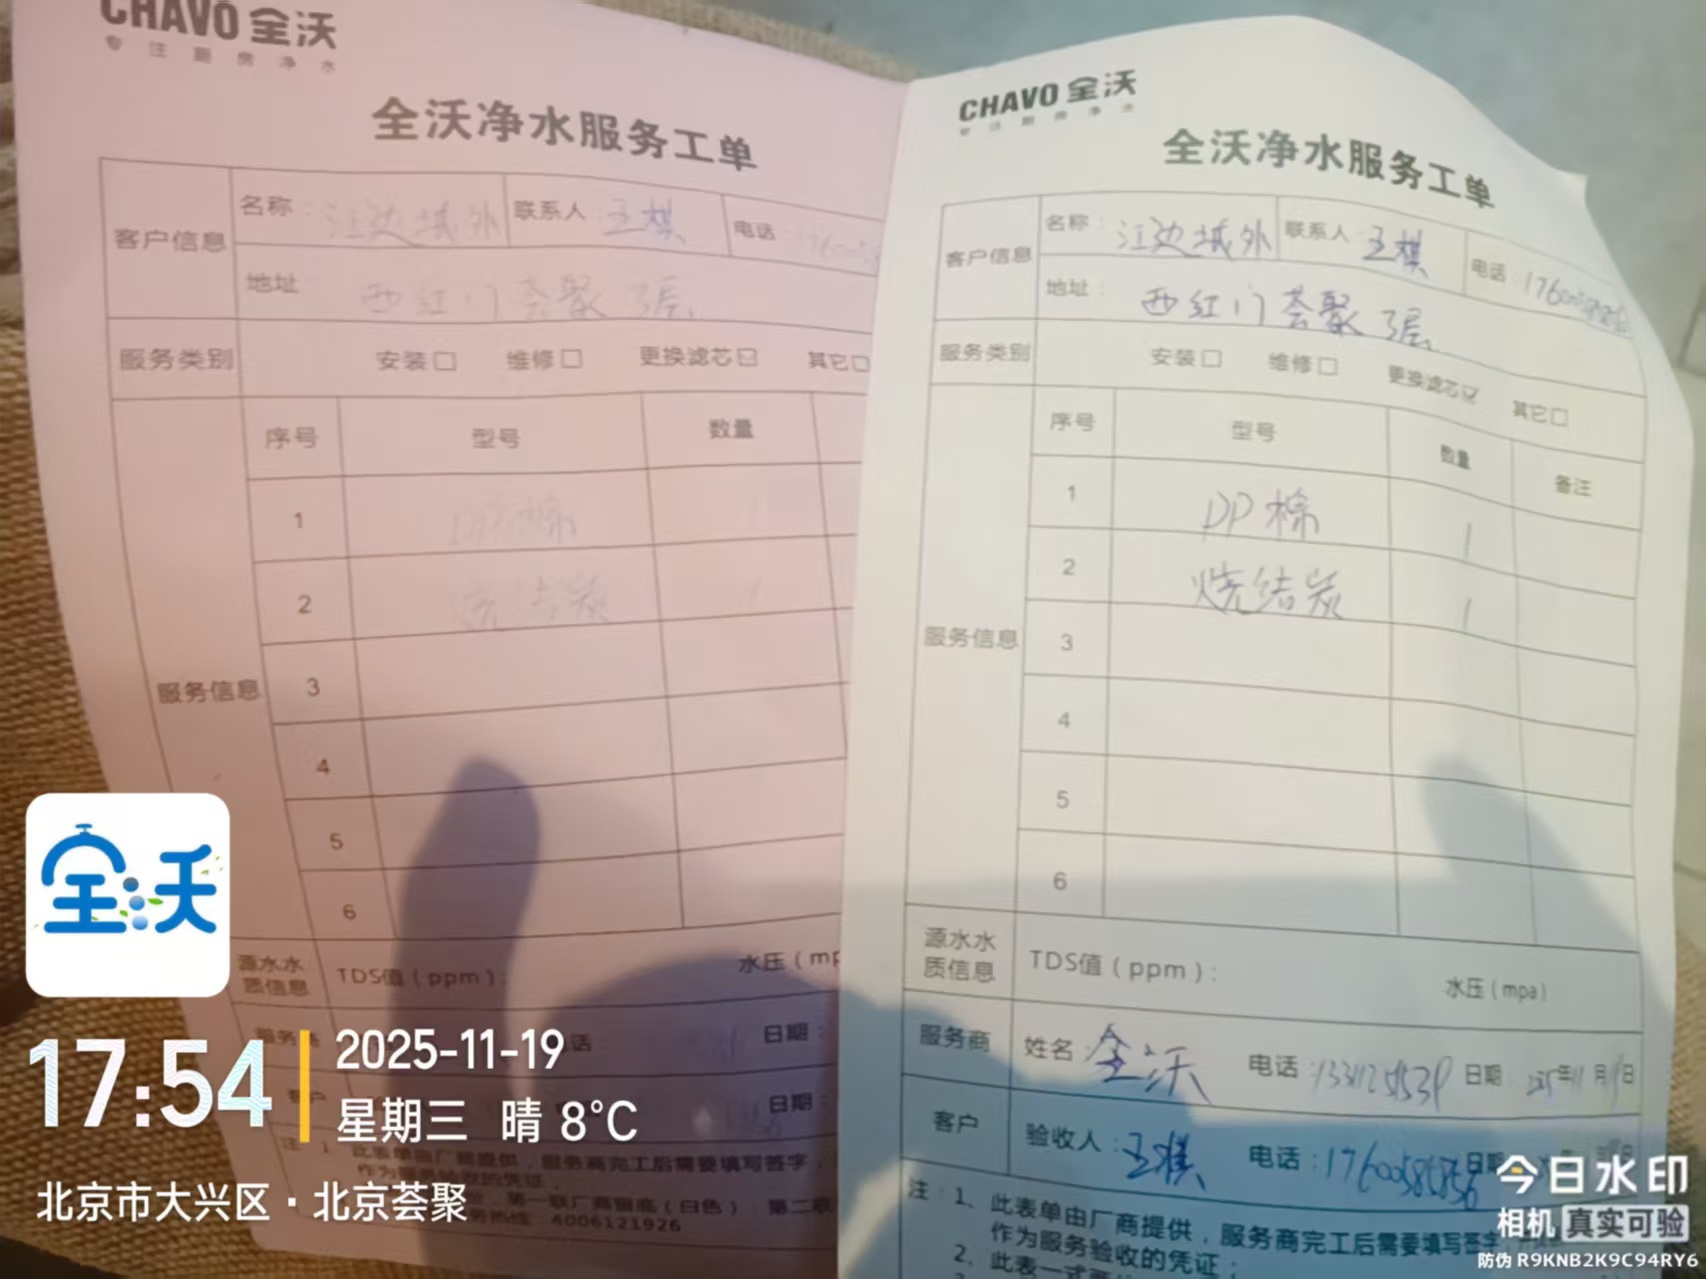 CHAVO 全沃
专注厨房净水
全沃净水服务工单
客户信息
名称：江边城外
联系人 王棋
电话：
地址 西红门荟聚3层
服务类别 安装□ 维修□ 更换滤芯☑ 其它□
服务信息
序号 型号 数量
1 PP棉 1
2 烧结炭 1
3
4
5
6
源水水质信息
TDS值（ppm）： 水压（mp
服务商 日期：
客户 日期：
注：1、此表单由厂商提供，服务商完工后需要填写签字，
作为服务验收的凭证；
第一联厂商留底（白色），第二联
4006121926
CHAVO 全沃
专注厨房净水
全沃净水服务工单
客户信息
名称：江边城外
联系人 王棋
电话：
地址：西红门荟聚3层
服务类别 安装□ 维修□ 更换滤芯☑ 其它□
服务信息
序号 型号 数量 备注
1 PP棉 1
2 烧结炭 1
3
4
5
6
源水水质信息
TDS值（ppm）： 水压（mpa）
服务商 姓名：全沃 电话： 日期 年11月19日
客户 验收人：王棋 电话：17600586856 日期
注：1、此表单由厂商提供，服务商完工后需要填写签字
作为服务验收的凭证；
2、此表一式
全沃
17:54
2025-11-19
星期三 晴 8°C
北京市大兴区·北京荟聚
今日水印
相机 真实可验
防伪 R9KNB2K9C94RY6